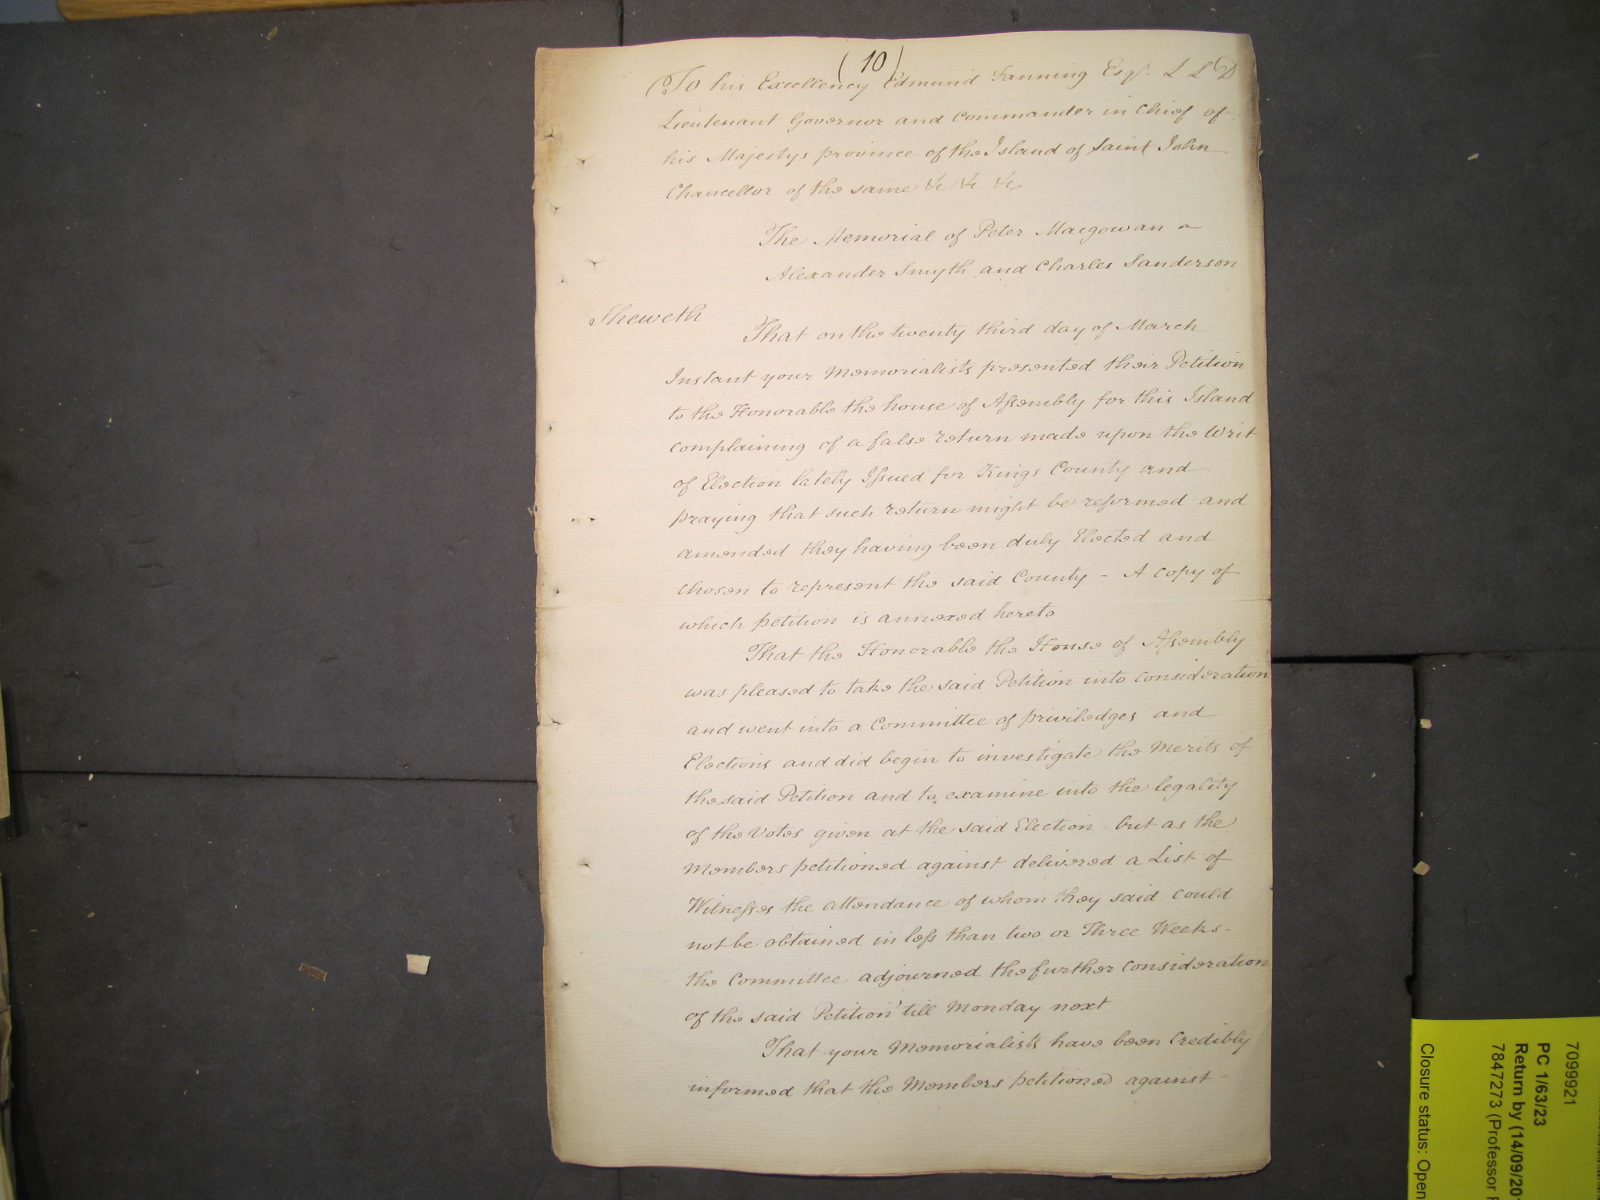 (10)
To his Excellency Edmund Fanning Esqr. L L D
Lieutenant Governor and Commander in Chief of
his Majestys province of the Island of Saint John
Chancellor of the same &c &c &c
The Memorial of Peter Macgowan
Alexander Smyth and Charles Sanderson
Sheweth
That on the twenty third day of March
Instant your Memorialists presented their Petition
to the Honorable the house of Assembly for this Island
complaining of a false return made upon the Writ
of Election lately Issued for Kings County and
praying that such return might be reformed and
amended they having been duly Elected and
chosen to represent the said County - A copy of
which petition is annexed hereto
That the Honorable the House of Assembly
was pleased to take the said Petition into consideration
and went into a Committee of priviledges and
Elections and did begin to investigate the Merits of
the said Petition and to examine into the legality
of the Votes given at the said Election but as the
Members petitioned against delivered a List of
Witnesses the attendance of whom they said could
not be obtained in less than two or Three Weeks -
the Committee adjourned the further consideration
of the said Petition 'till Monday next
That your Memorialists have been Credibly
informed that the Members petitioned against
7099921
PC 1/63/23
Return by (14/09/20
7847273 (Professor
Closure status: Open